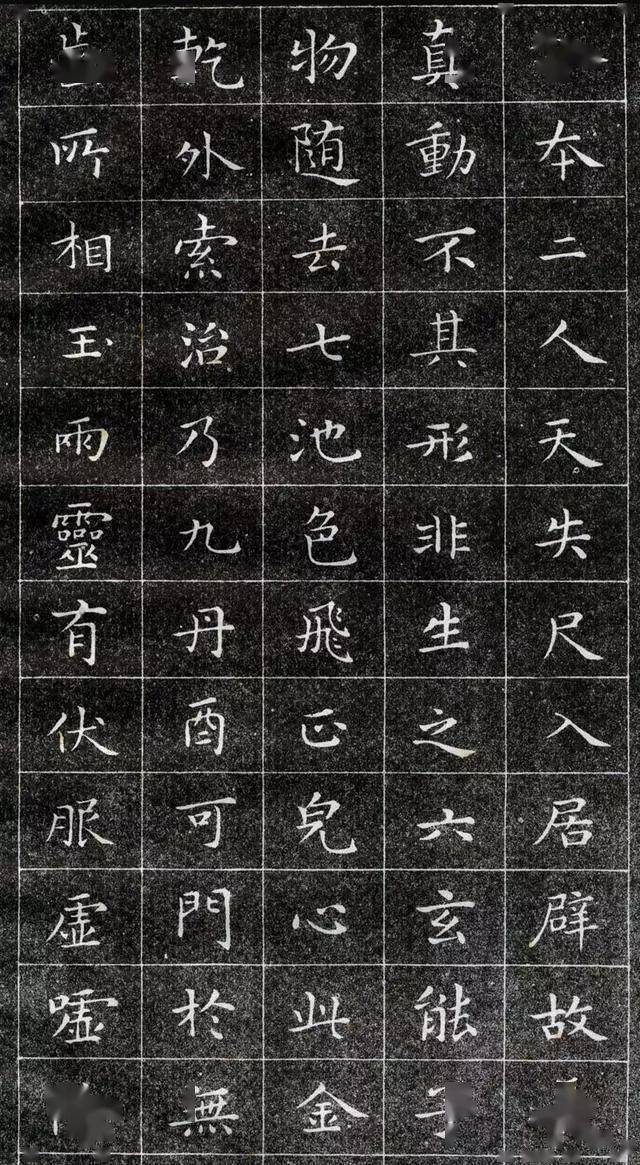 本二人天失尺入居辟故
真動不其形非生之六玄能
物随去七池色飛正皃心此金
乾外索治乃九丹酉可門於無
所相玉雨靈有伏服虚嘘